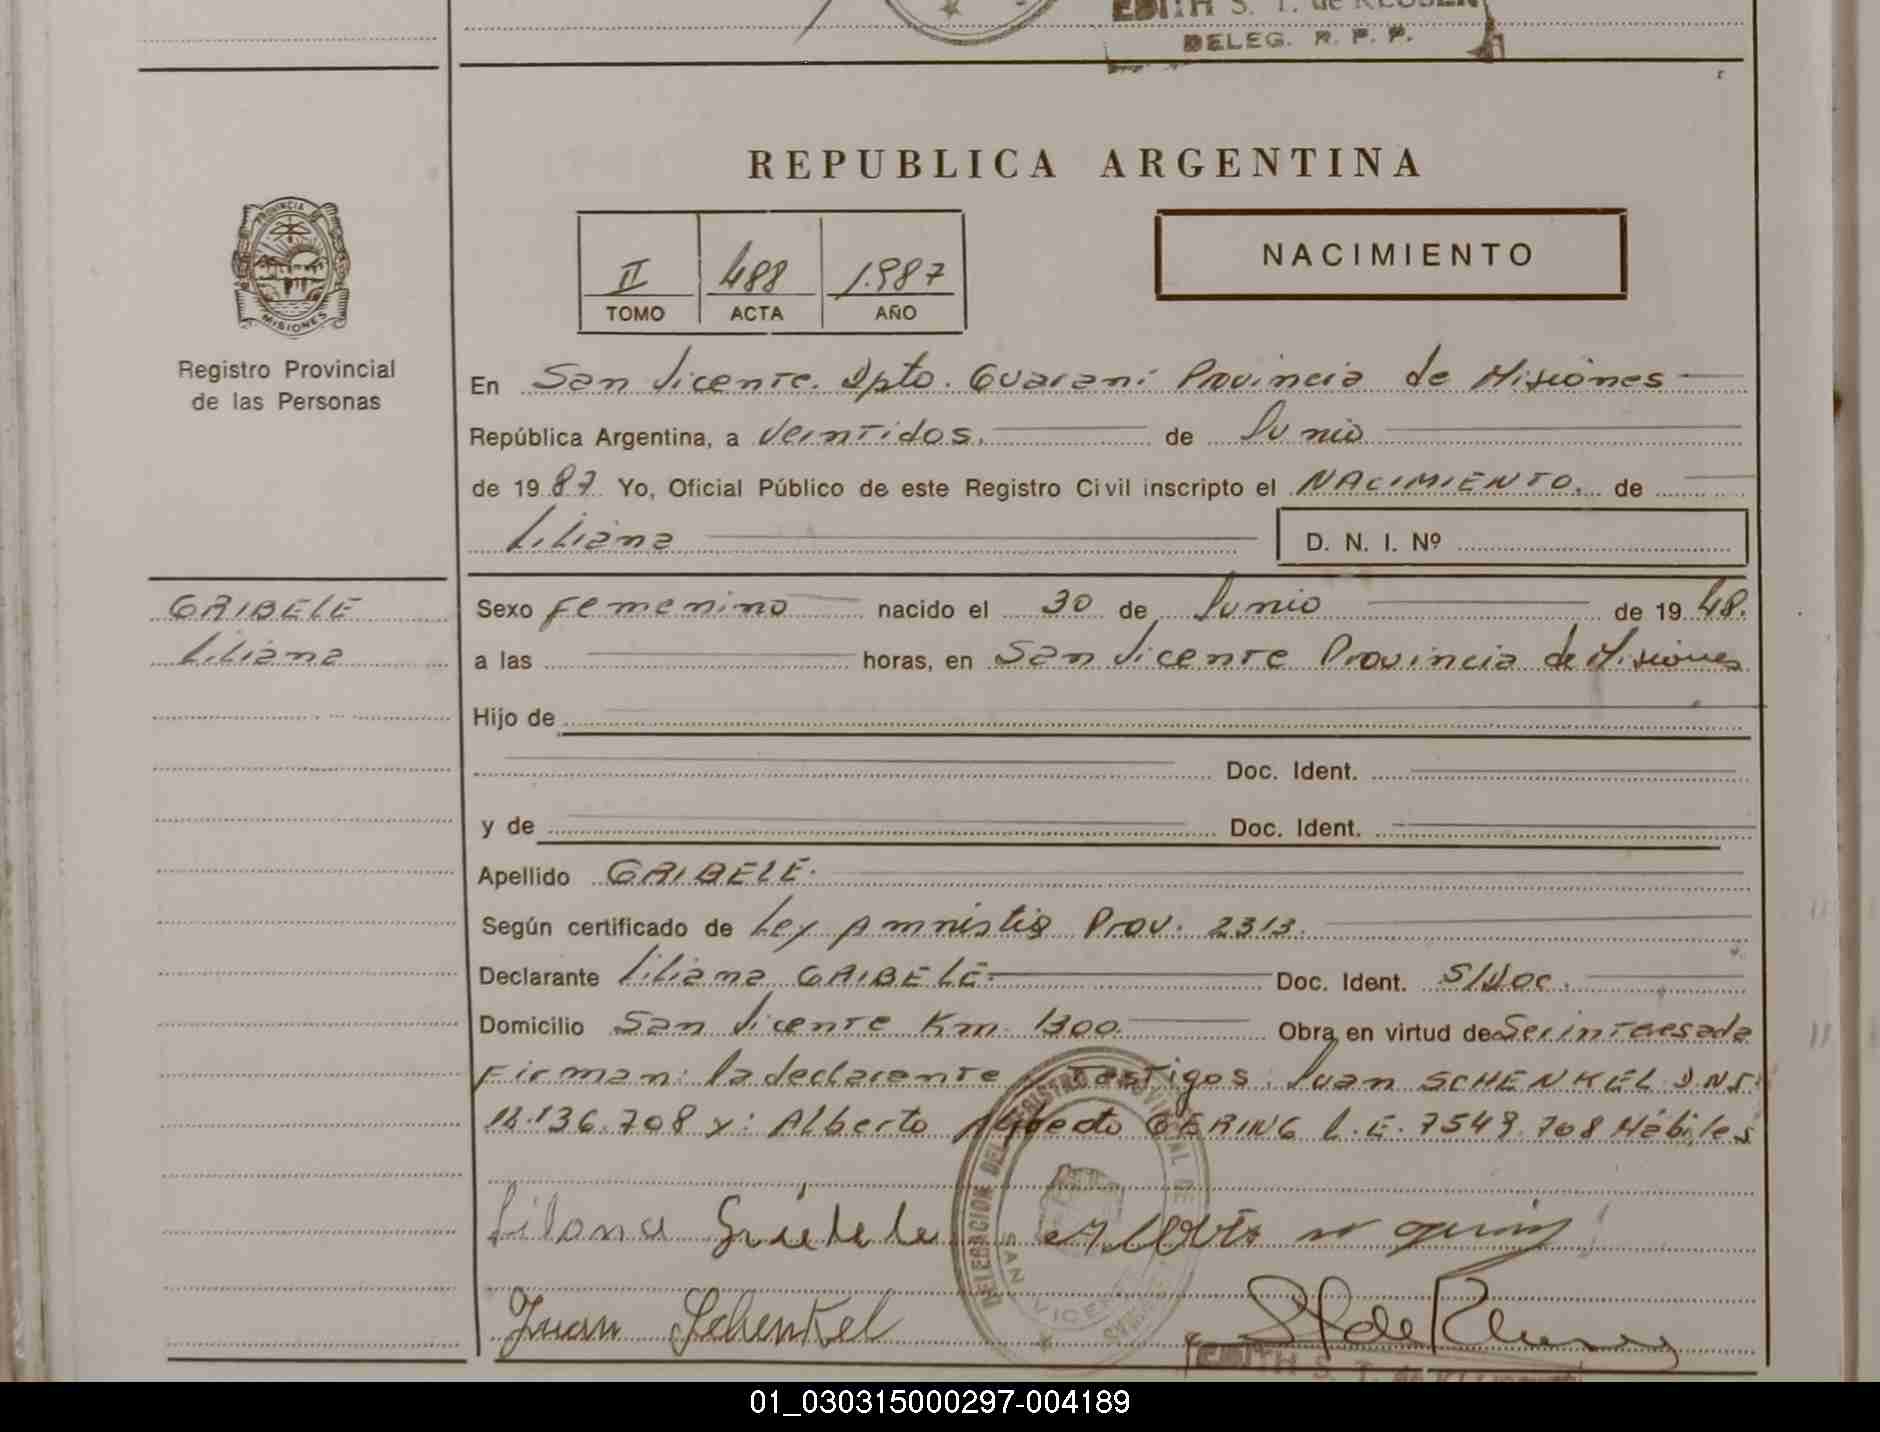 EDITH S. T. de REUSER
DELEG. R. P. P.
REPUBLICA ARGENTINA
PROVINCIA DE
MISIONES
Registro Provincial
de las Personas
II 488 1.987
TOMO ACTA AÑO
NACIMIENTO
En San Vicente. Dpto. Guaraní Provincia de Misiones
República Argentina, a Veintidos. de Junio
de 1987 Yo, Oficial Público de este Registro Civil inscripto el NACIMIENTO. de
Liliana D. N. I. Nº
GRIBELE
Liliana
Sexo Femenino nacido el 30 de Junio de 1948.
a las horas, en San Vicente Provincia de Misiones
Hijo de
Doc. Ident.
y de Doc. Ident.
Apellido GRIBELE.
Según certificado de Ley Amnistia Prov. 2313.
Declarante Liliana GRIBELE. Doc. Ident. S/Doc.
Domicilio San Vicente Km. 1300. Obra en virtud de Ser interesada
Firman: la declarante Testigos: Juan SCHENKEL D.N.I.
136.708 y: Alberto GERING L.E. 7549.708 Hábiles
DELEGACION DEL REGISTRO PROVINCIAL DE
SAN VICENTE
Lilana Gribele
Juan Schenkel
EDITH S. T. de
01_030315000297-004189